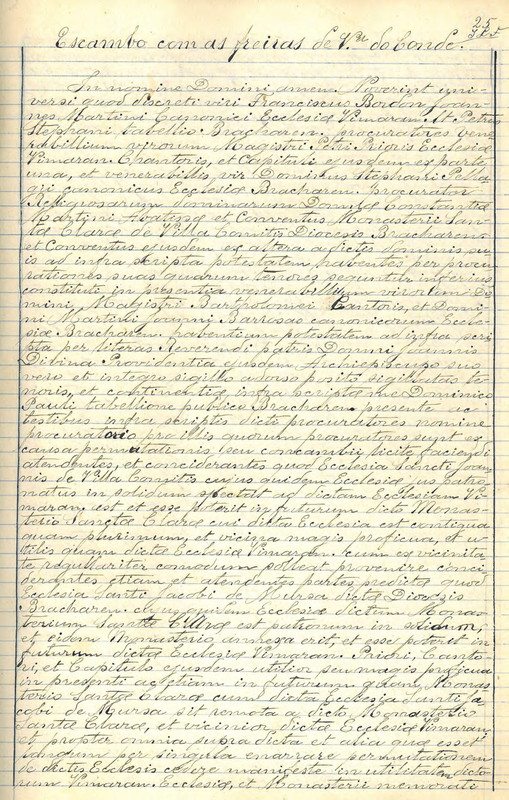 25
Escambo com as freiras de V.ª do Conde.
In nomine Domini amem. Noverint uni-
versi quod discreti viri Franciscus Bordon Joan-
nes Martini Canonici Ecclesiæ Vimaran. et Petrus
Stephani tabellio Bracharen. procuratores vene
rabillium virorum Magistri Petri Prioris Ecclesiæ
Vimaran Chantoris, et Capituli ejusdem ex parte
una, et venerabilis vir Dominus Stephani Pella
gii canonicus Ecclesiæ Bracharen. procurator
Religiosarum dominarum Domnæ Constantiæ
Martini Abatissæ et Conventus Monasterii San-
tæ Claræ de Villa Comitis Diocesis Bracharen.
et Conventus ejusdem ex altera a dictis dominis su
is ad infra scripta potestatem habentes per procu
rationes suas quarum tenores seguntur inferius
constituti in presentia venerabillium virorum Do
mini Magistri Bartholomei Cantoris, et Domi-
ni Martini Joanni Barrosas canonicorum Eccle-
siæ Bracharen. habentium potestatem ad infra scri
pta per literas Reverendi patris Domni Joannis
Divina Providentia ejusdem Archiepiscupo suo
vero et integro sigillo adorso posito sigillatas te
noris, et continentiæ infra scriptæ me Dominico
Pauli tabellione publico Bracharen. presente ac
testibus infra scriptis dicti procuratores nomine
procuratorio pro illis quorum procuratores sunt ex
causa permutationis seu concambii licite faciendi
atendentes, et conciderantes quod Ecclesia Sancti Joan
nis de Villa Comitis cujus quidem Ecclesiæ jus patro
natus in solidum spectat ad dictam Ecclesiam Vi
maran. est et esse poterit in futurum dicto Monas-
terio Sanctæ Claræ cui dicta Ecclesia est contigua
quam plurimum, et vicina magis proficua, et u-
tilis quam dictæ Ecclesiæ Vimaran. cum ex vicinita
te regulariter comodum soleat provenire conci
derantes etiam et atendentes partes predictæ quod
Ecclesia Santi Jacobi de Mursa dictæ Diocesis
Bracharen. cujus quidem Ecclesiæ dictum Monas-
terium Santæ Claræ est patronum in solidum,
et eidem Monasterio annexa erit, et esse poterit in
futurum dictæ Ecclesiæ Vimaran. Priori, Canto-
ri, et Capitulo ejusdem utilior seu magis proficua
in presenti ac etiam in futurum quam Monas
terio Santæ Claræ cum dicta Ecclesia Santi Ja
cobi de Mursa sit remota a dicto Monasterio
Santæ Claræ, et vicinior dictæ Ecclesiæ Vimaran.
et propter omnia supra dicta et alia quæ esset
tardum per singula enarrare permutationem
de dictis Ecclesis cedere manifeste in utilitatem dicto
rum Vimaran. Ecclesiæ, et Monasterii memorati